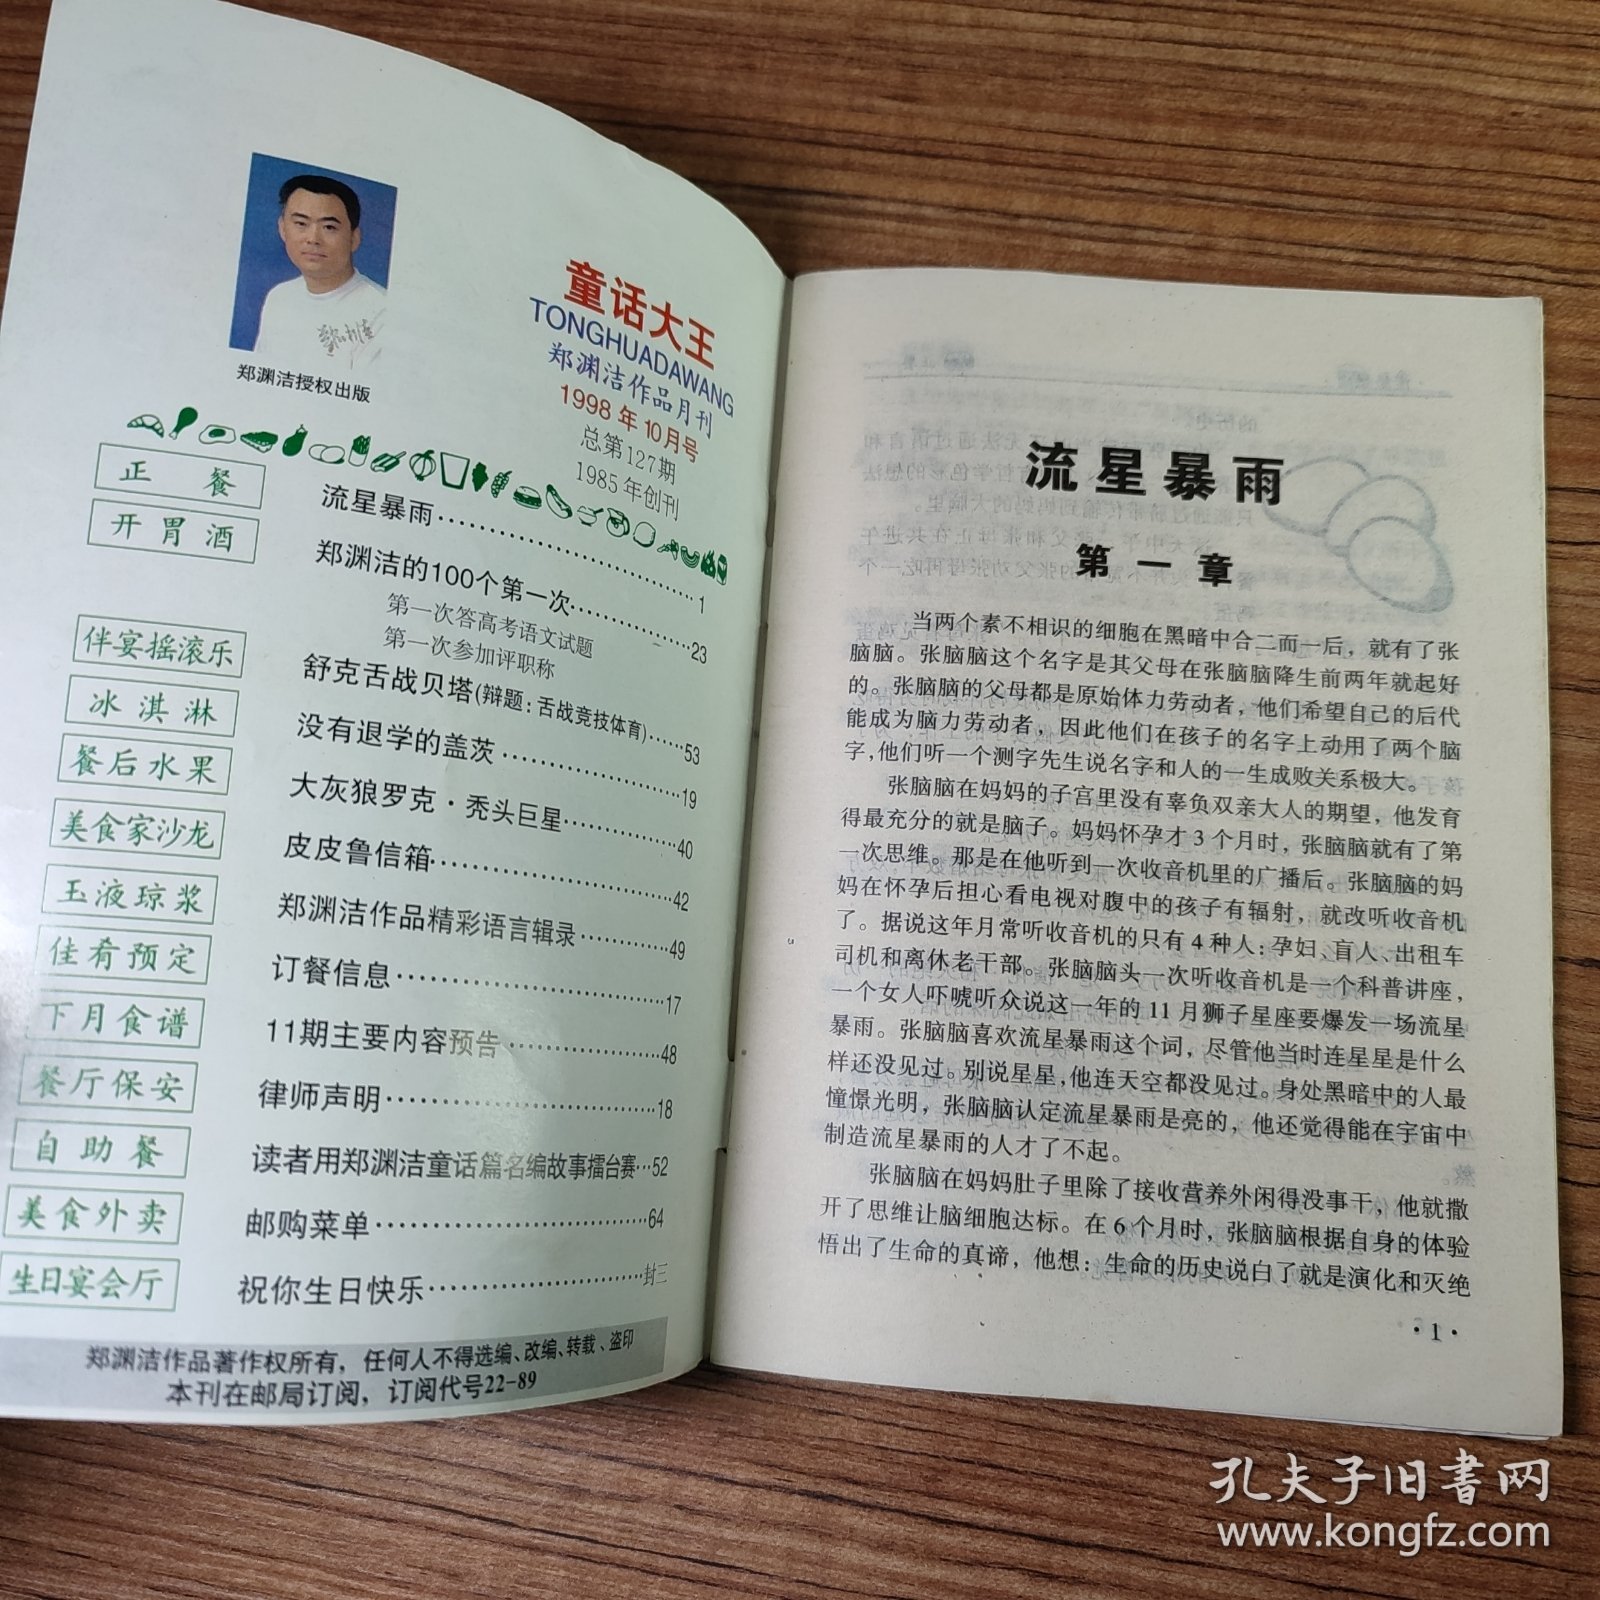 郑渊洁授权出版
童话大王
TONGHUADAWANG
郑渊洁作品月刊
1998年10月号
总第127期
1985年创刊
正餐
流星暴雨……1
开胃酒
郑渊洁的100个第一次……23
第一次答高考语文试题
第一次参加评职称
伴宴摇滚乐
舒克舌战贝塔(辩题:舌战竞技体育)……53
冰淇淋
没有退学的盖茨……19
餐后水果
大灰狼罗克·秃头巨星……40
美食家沙龙
皮皮鲁信箱……42
玉液琼浆
郑渊洁作品精彩语言辑录……49
佳肴预定
订餐信息……17
下月食谱
11期主要内容预告……48
餐厅保安
律师声明……18
自助餐
读者用郑渊洁童话篇名编故事擂台赛…52
美食外卖
邮购菜单……64
生日宴会厅
祝你生日快乐……封三
郑渊洁作品著作权所有,任何人不得选编、改编、转载、盗印
本刊在邮局订阅,订阅代号22-89
流星暴雨
第一章
当两个素不相识的细胞在黑暗中合二而一后,就有了张
脑脑。张脑脑这个名字是其父母在张脑脑降生前两年就起好
的。张脑脑的父母都是原始体力劳动者,他们希望自己的后代
能成为脑力劳动者,因此他们在孩子的名字上动用了两个脑
字,他们听一个测字先生说名字和人的一生成败关系极大。
张脑脑在妈妈的子宫里没有辜负双亲大人的期望,他发育
得最充分的就是脑子。妈妈怀孕才3个月时,张脑脑就有了第
一次思维。那是在他听到一次收音机里的广播后。张脑脑的妈
妈在怀孕后担心看电视对腹中的孩子有辐射,就改听收音机
了。据说这年月常听收音机的只有4种人:孕妇、盲人、出租车
司机和离休老干部。张脑脑头一次听收音机是一个科普讲座,
一个女人吓唬听众说这一年的11月狮子星座要爆发一场流星
暴雨。张脑脑喜欢流星暴雨这个词,尽管他当时连星星是什么
样还没见过。别说星星,他连天空都没见过。身处黑暗中的人最
憧憬光明,张脑脑认定流星暴雨是亮的,他还觉得能在宇宙中
制造流星暴雨的人才了不起。
张脑脑在妈妈肚子里除了接收营养外闲得没事干,他就撒
开了思维让脑细胞达标。在6个月时,张脑脑根据自身的体验
悟出了生命的真谛,他想:生命的历史说白了就是演化和灭绝
·1·
孔夫子旧书网
www.kongfz.com